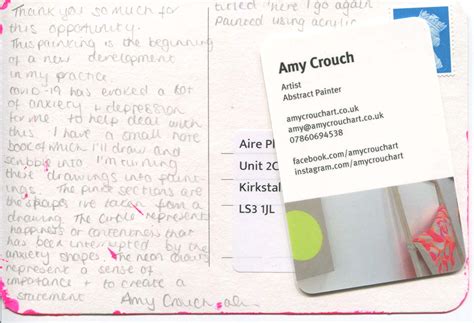 Thank you so much for
this opportunity.
This painting is the beginning
of a new development
in my practice.
covid-19 has evoked a lot
of anxiety + depression
for me to help deal with
this I have a small note
book of which I'll draw and
scribble into I'm turning
these drawings into paint-
ings. The pink sections are
the shapes i've taken from a
drawing The circle represents
happiness or contentness that
has been interrupted by the
anxiety shapes. The neon colours
represent a sense of
importance + to create a
statement Amy Crouch
titled 'here I go again
Painted using acrylic
Amy Crouch
Artist
Abstract Painter
amycrouchart.co.uk
amy@amycrouchart.co.uk
07860694538
facebook.com/amycrouchart
instagram.com/amycrouchart
Aire Pl
Unit 2C
Kirkstal
LS3 1JL